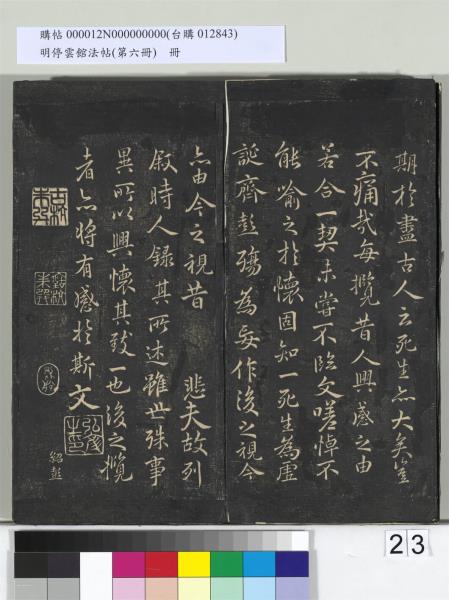 購帖 000012N000000000(台購 012843)
明停雲館法帖(第六冊) 冊
期於盡古人云死生亦大矣豈
不痛哉每攬昔人興感之由
若合一契未嘗不臨文嗟悼不
能喻之於懷固知一死生為虛
誕齊彭殤為妄作後之視今
亦由今之視昔 悲夫故列
敘時人錄其所述雖世殊事
異所以興懷其致一也後之攬
者亦將有感於斯文
紹彭
23